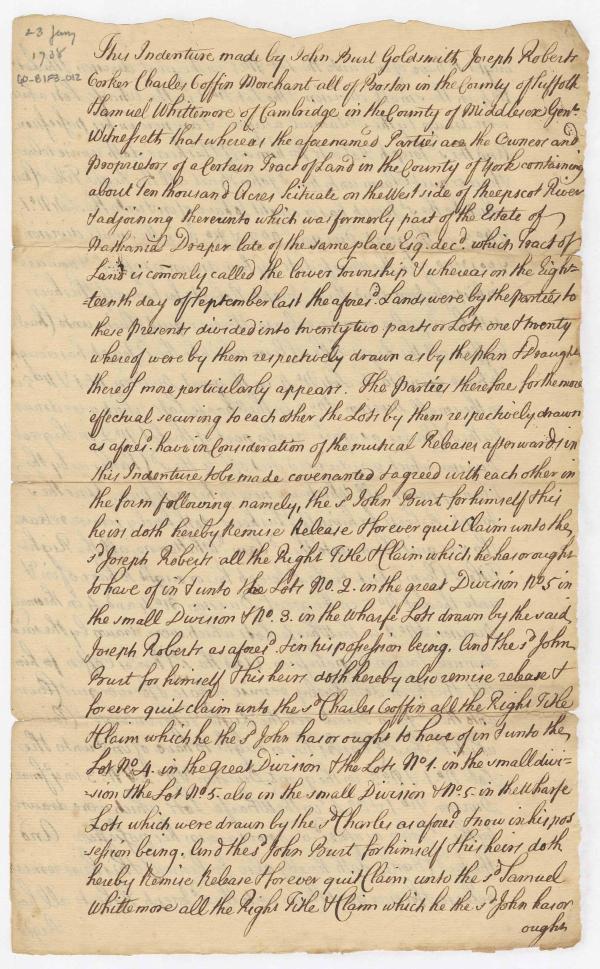 23 Jany
1738
60-81F3-012
This Indenture made by John Burt Goldsmith, Joseph Roberts
Corker Charles Coffin Merchant all of Boston in the County of Suffolk
& Samuel Whittemore of Cambridge in the County of Middlesex Gent.
Witnesseth that whereas the aforenamed Parties are the Owners and
Proprietors of a Certain Tract of Land in the County of York containing
about Ten thousand Acres Scituate on the West side of Sheepscot River
& adjoining thereunto which was formerly part of the Estate of
Nathaniel Draper late of the same place Esq. decd. which Tract of
Land is comonly called the lower Township & whereas on the Eigh-
=teenth day of September last the afores.d Lands were by the Parties to
these Presents divided into twenty two parts or Lots one & twenty
whereof were by them respectively drawn as by the plan & Draught
thereof more perticularly appears. The Parties therefore for the more
effectual securing to each other the Lots by them respectively drawn
as afores.d have in Consideration of the mutual Releases afterwards in
this Indenture to be made covenanted & agreed with each other in
the form following namely, the s.d John Burt for himself & his
heirs doth hereby Remise Release & forever quit Claim unto the
s.d Joseph Roberts all the Right Title & Claim which he has or ought
to have of in & unto the Lots No. 2. in the great Division No 5 in
the small Division & No. 3. in the Wharfe Lots drawn by the said
Joseph Roberts as afores.d & in his possession being. And the s.d John
Burt for himself & his heirs doth hereby also remise release &
forever quit claim unto the s.d Charles Coffin all the Right Title
& Claim which he the s.d John has or ought to have of in & unto the
Lot No 4. in the great Division & the Lots No 1. in the small divi-
-sion & the Lot No 5. also in the small Division & No 5. in the Wharfe
Lots which were drawn by the s.d Charles as afores.d & now in his pos
session being. And the s.d John Burt for himself & his heirs doth
hereby Remise Release & forever quit Claim unto the s.d Samuel
Whittemore all the Right Title & Claim which he the s.d John has or
ought